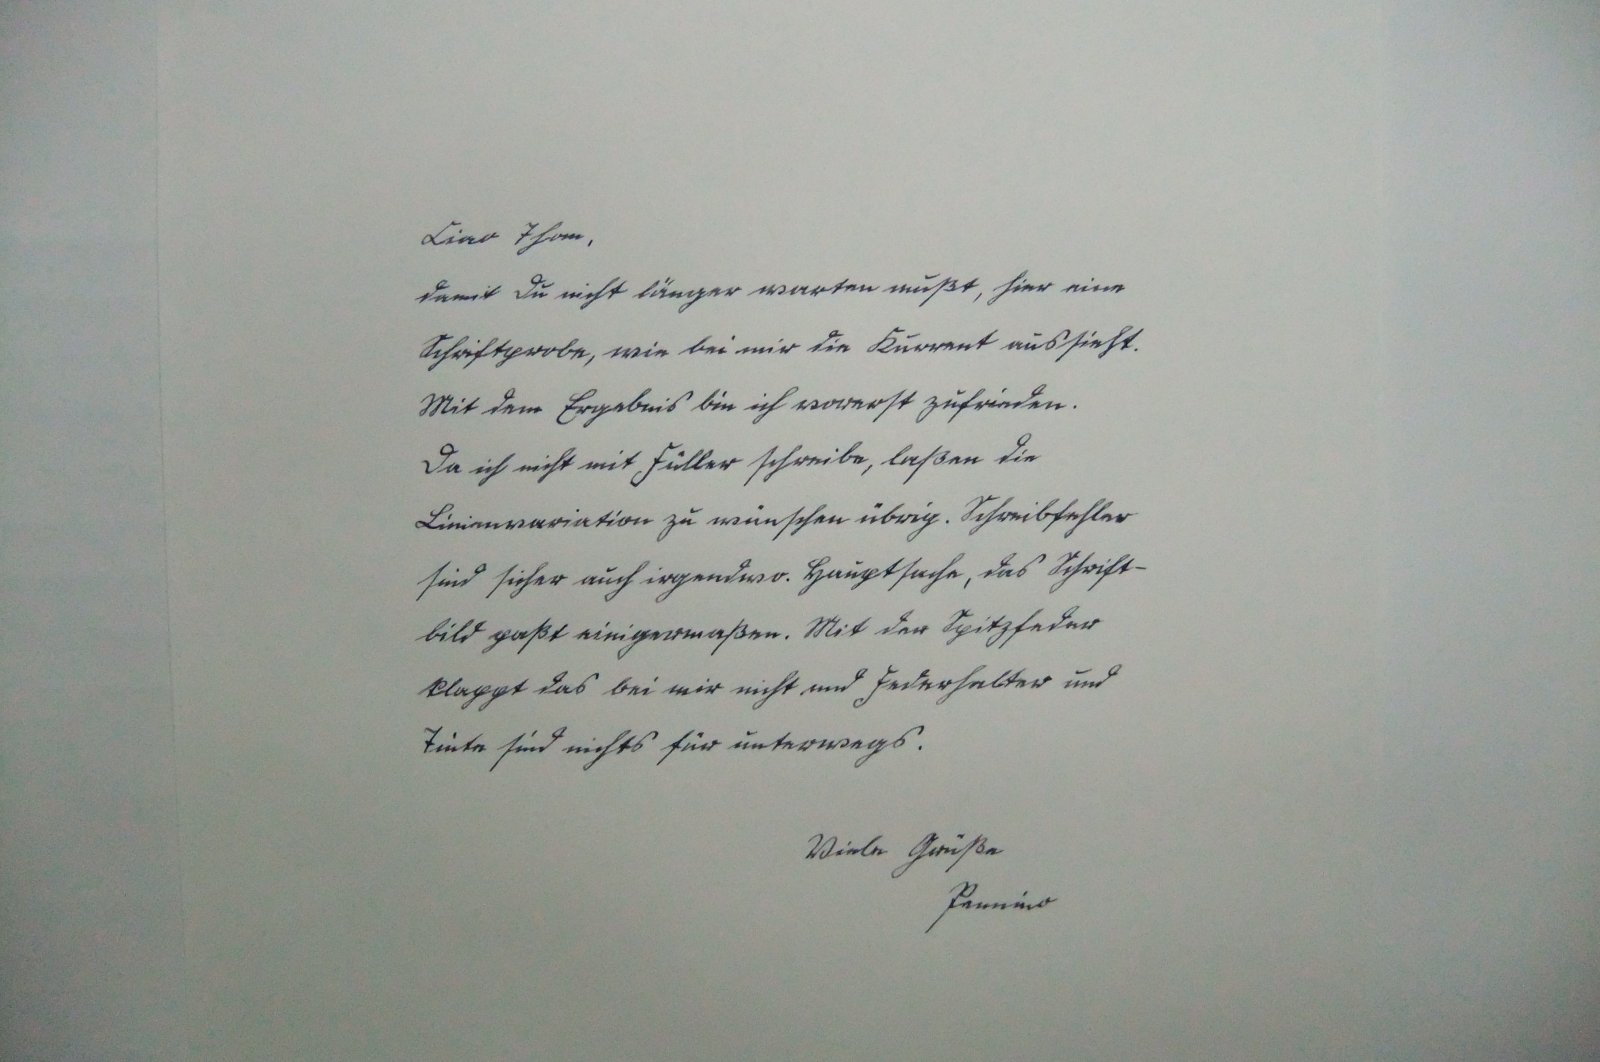 Ciao Thom,
damit Du nicht länger warten mußt, hier eine
Schriftprobe, wie bei mir die Kurrent aussieht.
Mit dem Ergebnis bin ich vorerst zufrieden.
Da ich nicht mit Füller schreibe, laßen die
Linienvariation zu wünschen übrig. Schreibfehler
sind sicher auch irgendwo. Hauptsache, das Schrift-
bild paßt einigermaßen. Mit der Spitzfeder
klappt das bei mir nicht und Federhalter und
Tinte sind nichts für unterwegs.
Viele Grüße
Pennino